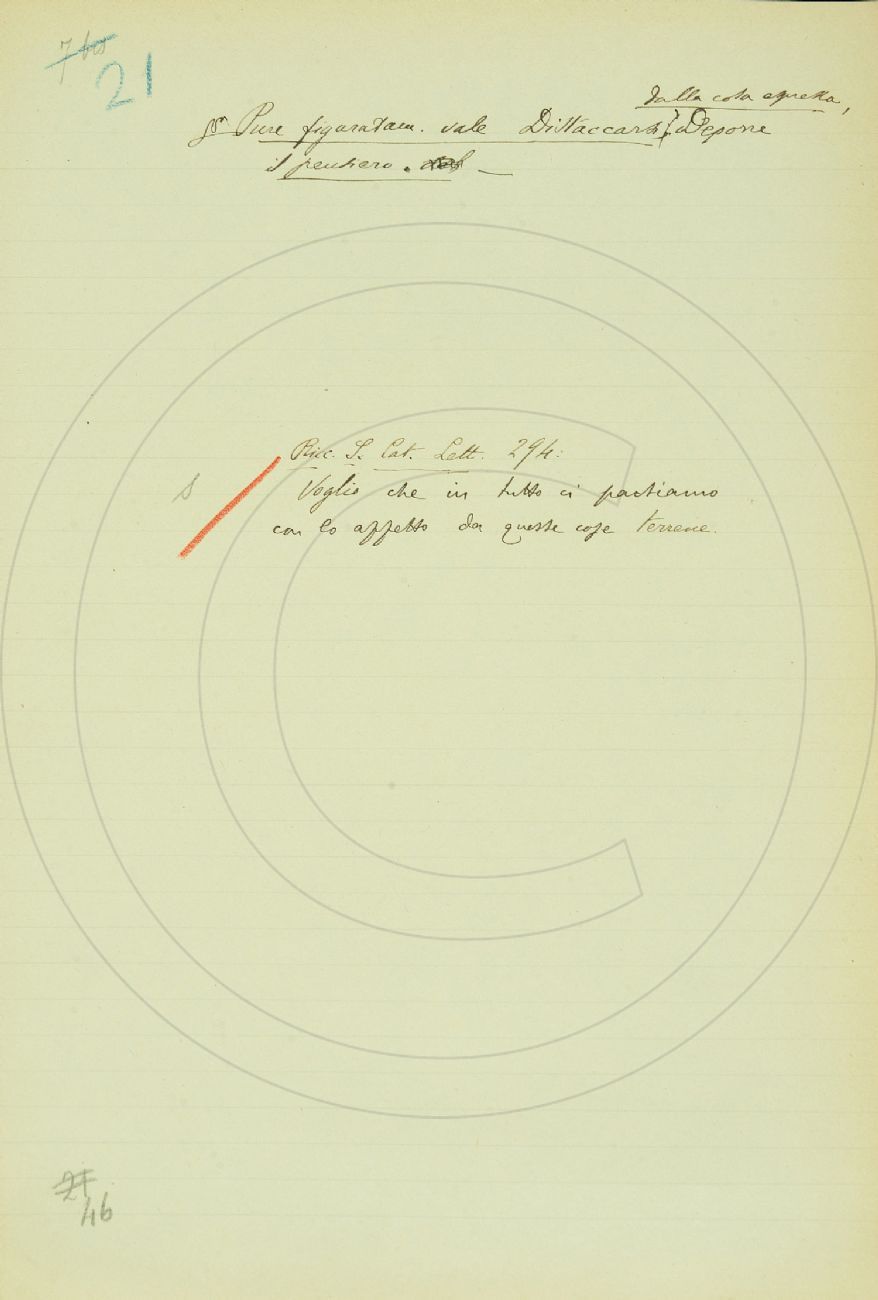 7 bis
21
dalla cosa espressa,
§ Pure figuratam. vale Distaccarsi Deporre
il pensiero. —
Ricc. S. Cat. Lett. 294:
S Voglio che in tutto ci partiamo
con lo affetto da queste cose terrene.
21
46